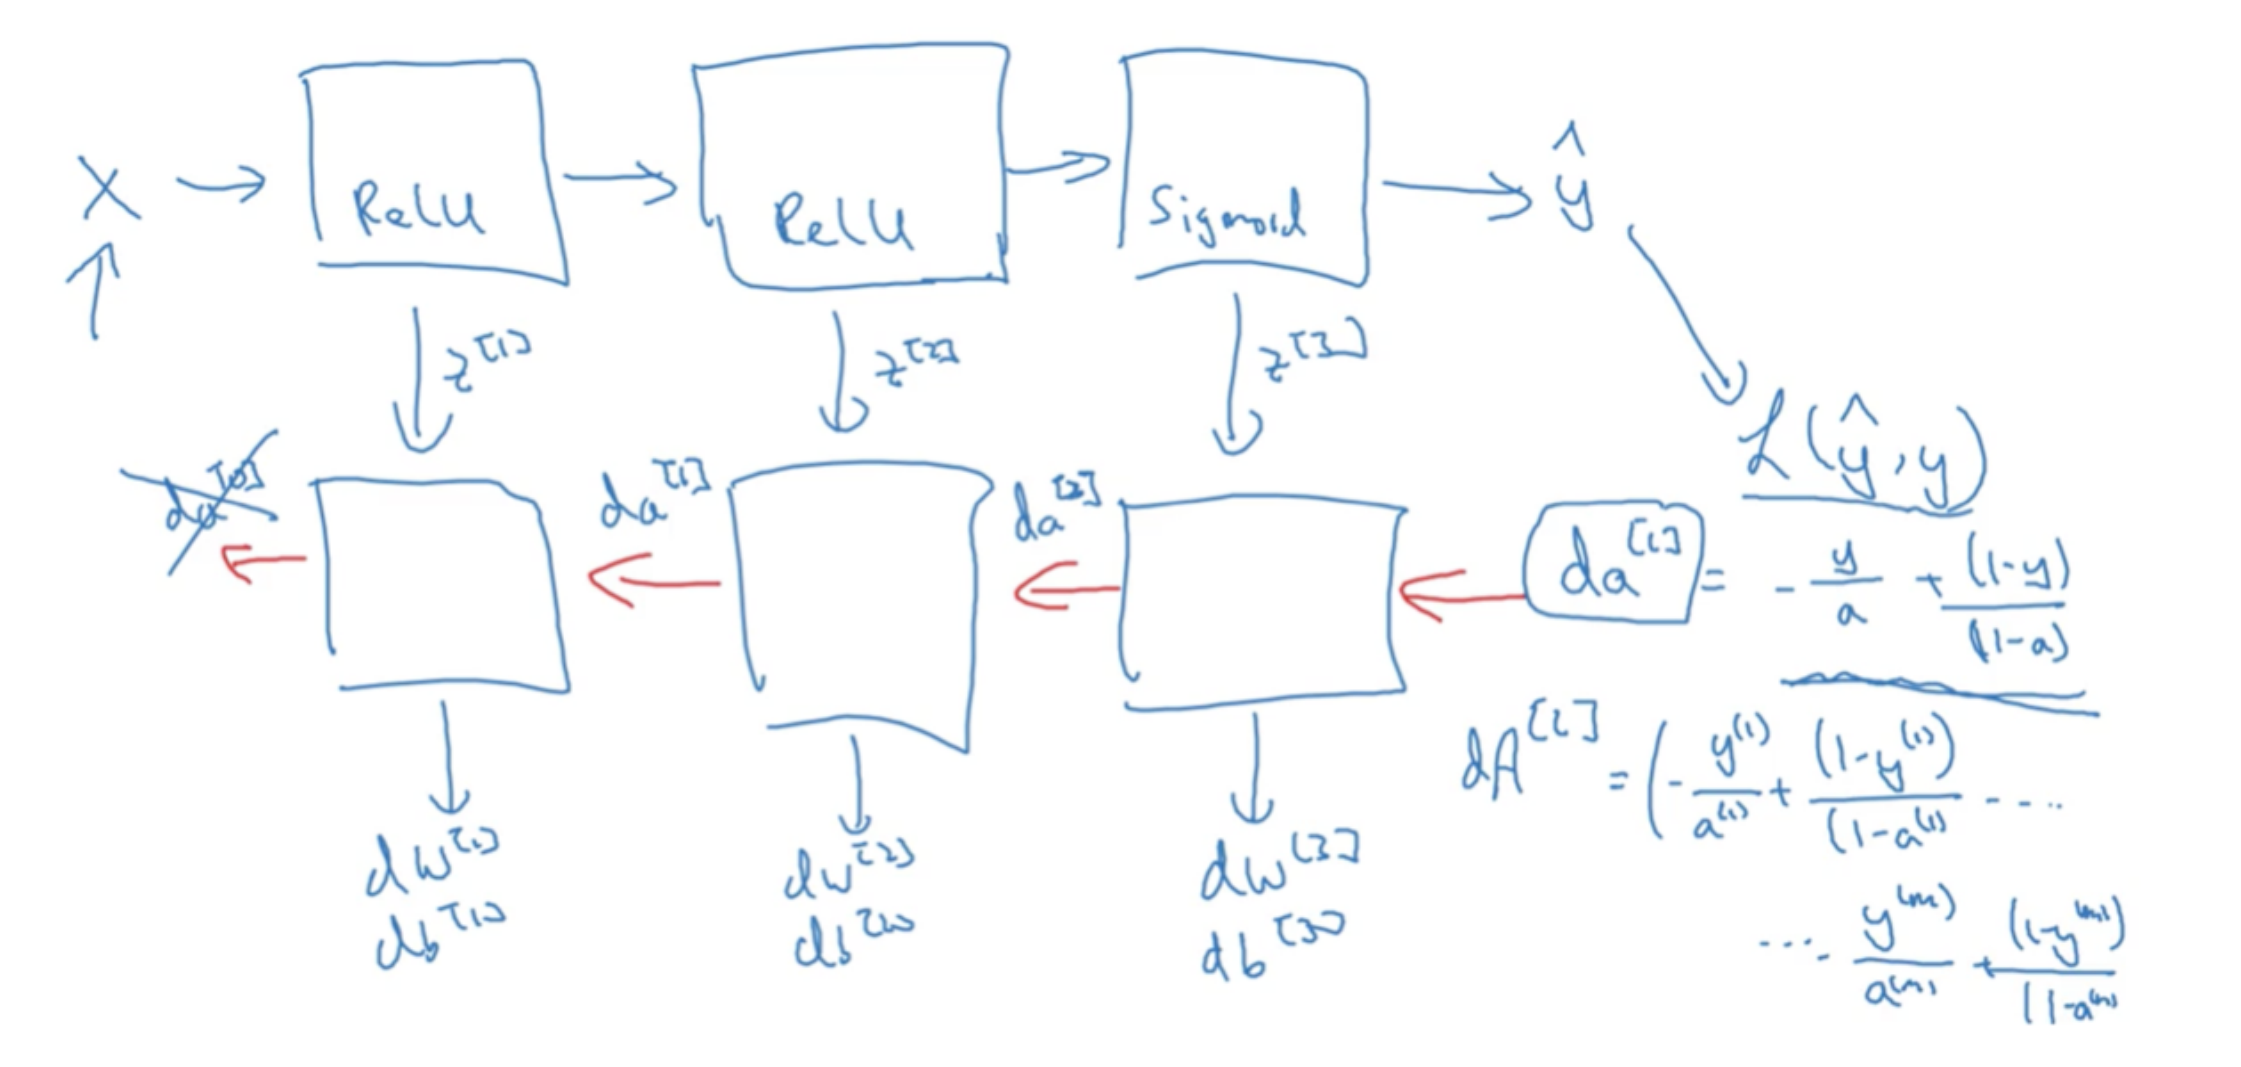 X → ReLU → ReLU → Sigmoid → ŷ
z^[1] z^[2] z^[3]
L(ŷ, y)
da^[0] da^[1] da^[2] da^[l] = - y/a + (1-y)/(1-a)
dA^[l] = (- y^(1)/a^(1) + (1-y^(1))/(1-a^(1) - - ...
... y^(m)/a^(m) + (1-y^(m))/(1-a^(m)
dw^[1] dw^[2] dw^[3]
db^[1] db^[2] db^[3]